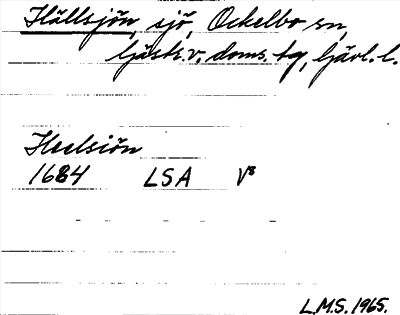 Hällsjön, sjö, Ockelbo sn,
Gästr. v. doms. tg, Gävl. l.
Helsiön
1684 LSA V⁸
L.M.S. 1965.